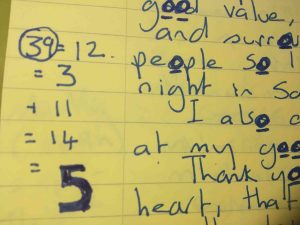 39 = 12.
= 3
+ 11
= 14
= 5
good value,
and
people so I
night in
I also
at my goo
Thank yo
heart, that